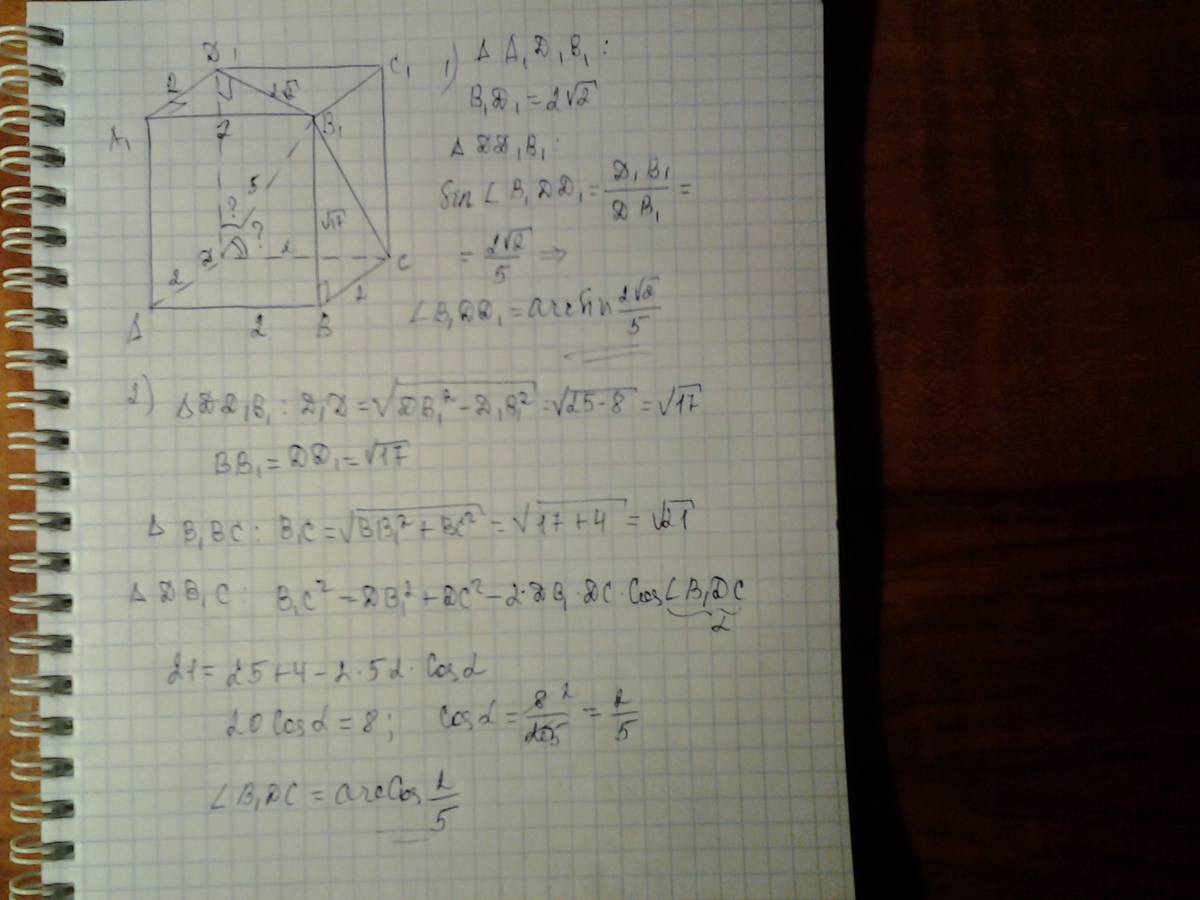 D₁ C₁ A₁ B₁ D C A B
2 2√2 ? 5 ? ? √17 2 2 2 2
1) Δ A₁D₁B₁:
B₁D₁ = 2√2
Δ DD₁B₁:
Sin ∠ B₁DD₁ = D₁B₁/DB₁ =
= 2√2/5 ⇒
∠B₁DD₁ = arcSin 2√2/5
2) Δ DD₁B₁: D₁D = √(DB₁² − D₁B₁²) = √(25-8) = √17
BB₁ = DD₁ = √17
Δ B₁BC: B₁C = √(BB₁² + BC²) = √(17+4) = √21
Δ DB₁C: B₁C² = DB₁² + DC² − 2·DB₁·DC·Cos∠B₁DC
α
21 = 25+4 − 2·5·2·Cosα
20 Cosα = 8; Cosα = 8/20 = 2/5
∠B₁DC = arcCos 2/5